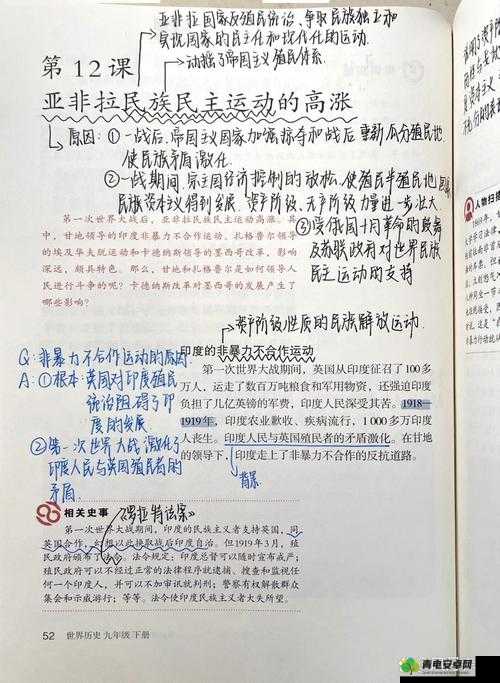 亚非拉国家反殖民统治、争取民族独立和
实现国家的民主化和现代化的运动.
动摇了帝国主义殖民体系.
第12课
亚非拉民族民主运动的高涨
原因: ①一战后,帝国主义国家加强掠夺和战后重新瓜分殖民地
使民族矛盾激化.
②一战期间,宗主国经济控制的放松,使殖民半殖民地国家
民族资本主义得到发展,资产阶级、无产阶级力量进一步壮大
③受俄国十月革命的鼓舞
及苏联政府对世界民族
民主运动的支持
第一次世界大战后,亚非拉民族民主运动高涨。其
中,甘地领导的印度非暴力不合作运动、扎格鲁尔领导
的埃及华夫脱运动和卡德纳斯领导的墨西哥改革,影响
深远,颇具特色。那么,甘地和扎格鲁尔是如何领导人
民进行斗争的呢?卡德纳斯改革对墨西哥的发展产生了
哪些影响?
资产阶级性质的民族解放运动.
印度的非暴力不合作运动
第一次世界大战期间,英国从印度征召了100多
万人,运走了数百万吨粮食和军用物资,还强迫印度
负担了几亿英镑的军费,印度人民深受其苦。1918—
1919年,印度农业歉收、疾病流行,1 000多万印度
人丧生。印度人民与英国殖民者的矛盾激化。在甘地
的领导下,印度走上了非暴力不合作的反抗道路。
背景
Q: 非暴力不合作运动的原因.
A: ①根本:英国对印度殖民
统治阻碍了印
度的发展
②第一次世界大战激化了
印度人民与英国殖民者的
矛盾.
相关史事
《罗拉特法案》
第一次世界大战期间,印度的民族主义者支持英国,同
英国合作,幻想以此换取战后印度自治。但1919年3月,殖
民政府颁布了法令。法令规定:印度总督可以随时宣布戒严;
殖民政府可以不经过正常的法律程序就逮捕、搜查和监视任
何一个印度人,并可以不加审讯就判刑;警察有权解散群众
集会和示威游行;等等。法令使印度民族主义者大失所望。
52 世界历史 九年级 下册
人物扫描
青电安卓网